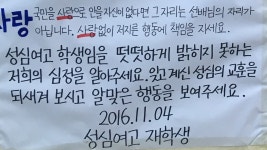 사랑
국민을 사랑으로 안을 자신이 없다면 그 자리는 선배님의 자리가
아닙니다. 사랑없이 저지른 행동에 책임을 지세요.
성심여고 학생임을 떳떳하게 밝히지 못하는
저희의 심정을 알아주세요. 잊고 계신 성심의 교훈을
되새겨 보시고 알맞은 행동을 보여주세요..
2016.11.04
성심여고 재학생